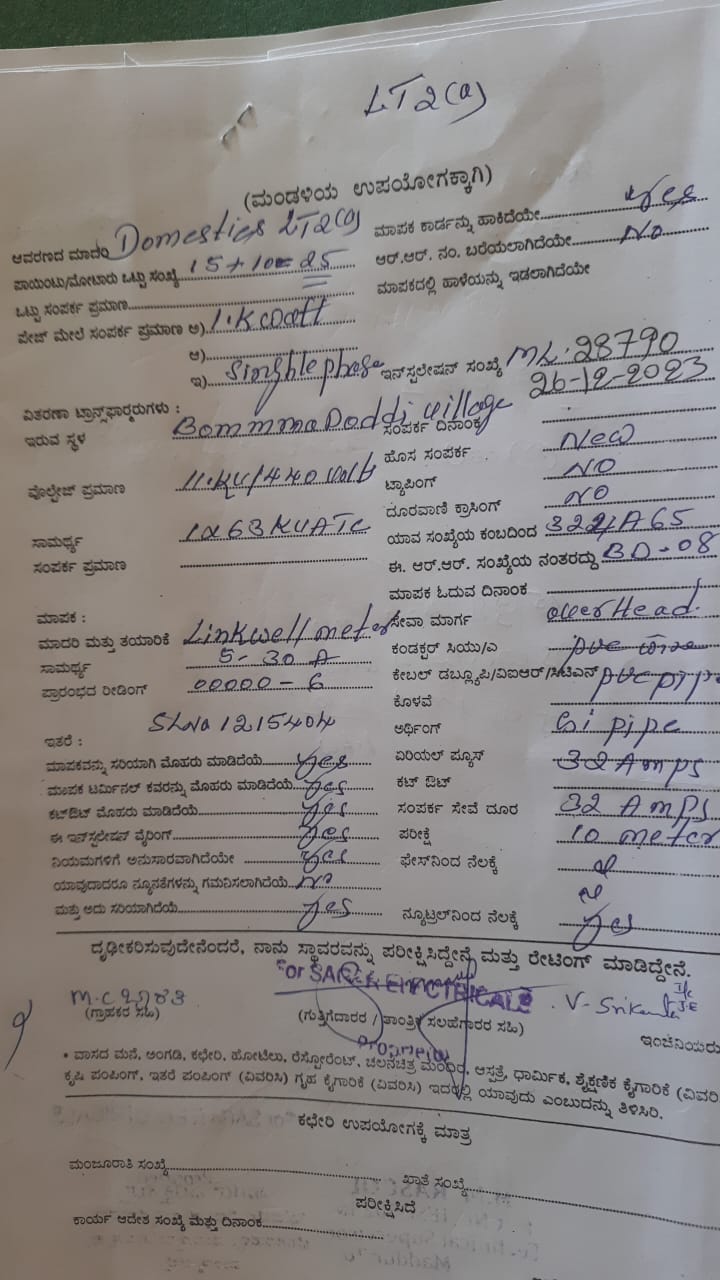 LT2(a)
(ಮಂಡಳಿಯ ಉಪಯೋಗಕ್ಕಾಗಿ)
ಆವರಣದ ಮಾದರಿ Domestics LT2(a)
ಪಾಯಿಂಟು/ಮೋಟಾರು ಒಟ್ಟು ಸಂಖ್ಯೆ 15+10= 25
ಒಟ್ಟು ಸಂಪರ್ಕ ಪ್ರಮಾಣ
ಪೇಜ್ ಮೇಲೆ ಸಂಪರ್ಕ ಪ್ರಮಾಣ ಅ) 1.Kwatt
ಆ)
ಇ) Singhle phase
ವಿತರಣಾ ಟ್ರಾನ್ಸ್‌ಫಾರ್ಮರುಗಳು :
ಇರುವ ಸ್ಥಳ BommmaDoddi village
ವೋಲ್ಟೇಜ್ ಪ್ರಮಾಣ 11.KV/440 Volt
ಸಾಮರ್ಥ್ಯ 1x63KVATC
ಸಂಪರ್ಕ ಪ್ರಮಾಣ
ಮಾಪಕ :
ಮಾದರಿ ಮತ್ತು ತಯಾರಿಕೆ Linkwell meter
ಸಾಮರ್ಥ್ಯ 5-30 A
ಪ್ರಾರಂಭದ ರೀಡಿಂಗ್ 00000-6
SLNo 1215404
ಇತರೆ :
ಮಾಪಕವನ್ನು ಸರಿಯಾಗಿ ಮೊಹರು ಮಾಡಿದೆಯೆ yes
ಮಾಪಕ ಟರ್ಮಿನಲ್ ಕವರನ್ನು ಮೊಹರು ಮಾಡಿದೆಯೆ yes
ಕಟ್‌ಔಟ್ ಮೊಹರು ಮಾಡಿದೆಯೆ yes
ಈ ಇನ್‌ಸ್ಟಲೇಷನ್ ವೈರಿಂಗ್ yes
ನಿಯಮಗಳಿಗೆ ಅನುಸಾರವಾಗಿದೆಯೇ yes
ಯಾವುದಾದರೂ ನ್ಯೂನತೆಗಳನ್ನು ಗಮನಿಸಲಾಗಿದೆಯೆ No
ಮತ್ತು ಅದು ಸರಿಯಾಗಿದೆಯೆ yes
ಮಾಪಕ ಕಾರ್ಡನ್ನು ಹಾಕಿದೆಯೇ yes
ಆರ್.ಆರ್. ನಂ. ಬರೆಯಲಾಗಿದೆಯೇ No
ಮಾಪಕದಲ್ಲಿ ಹಾಳೆಯನ್ನು ಇಡಲಾಗಿದೆಯೇ
ಇನ್‌ಸ್ಟಲೇಷನ್ ಸಂಖ್ಯೆ ML.28790
26-12-2023
ಸಂಪರ್ಕ ದಿನಾಂಕ
ಹೊಸ ಸಂಪರ್ಕ New
ಟ್ಯಾಪಿಂಗ್ NO
ದೂರವಾಣಿ ಕ್ರಾಸಿಂಗ್ NO
ಯಾವ ಸಂಖ್ಯೆಯ ಕಂಬದಿಂದ
ಈ. ಆರ್.ಆರ್. ಸಂಖ್ಯೆಯ ನಂತರದ್ದು BD-08
ಮಾಪಕ ಓದುವ ದಿನಾಂಕ
ಸೇವಾ ಮಾರ್ಗ overHead.
ಕಂಡಕ್ಟರ್ ಸಿಯು/ಎ pvc wire
ಕೇಬಲ್ ಡಬ್ಲ್ಯೂಪಿ/ವಿಐಆರ್/ಸಿಟಿಎಸ್ pvc pipe
ಕೊಳವೆ
ಅರ್ಥಿಂಗ್ Gi pipe
ಏರಿಯಲ್ ಪ್ಯೂಸ್ 32 Amps
ಕಟ್ ಔಟ್
ಸಂಪರ್ಕ ಸೇವೆ ದೂರ 32 Amps
ಪರೀಕ್ಷೆ 10 meter
ಫೇಸ್‌ನಿಂದ ನೆಲಕ್ಕೆ
ನ್ಯೂಟ್ರಲ್‌ನಿಂದ ನೆಲಕ್ಕೆ yes
ದೃಢೀಕರಿಸುವುದೇನೆಂದರೆ, ನಾನು ಸ್ಥಾವರವನ್ನು ಪರೀಕ್ಷಿಸಿದ್ದೇನೆ ಮತ್ತು ರೇಟಿಂಗ್ ಮಾಡಿದ್ದೇನೆ.
M.C ಭಾರತಿ
For ELECTRICALS
V-Srikanta I/c J.E
(ಗ್ರಾಹಕರ ಸಹಿ) (ಗುತ್ತಿಗೆದಾರರ / ತಾಂತ್ರಿಕ ಸಲಹೆಗಾರರ ಸಹಿ) ಇಂಜಿನಿಯರು
• ವಾಸದ ಮನೆ, ಅಂಗಡಿ, ಕಛೇರಿ, ಹೋಟೆಲು, ರೆಸ್ಟೋರೆಂಟ್, ಚಲನಚಿತ್ರ ಮಂದಿರ, ಆಸ್ಪತ್ರೆ, ಧಾರ್ಮಿಕ, ಶೈಕ್ಷಣಿಕ ಕೈಗಾರಿಕೆ (ವಿವರಿ
ಕೃಷಿ ಪಂಪಿಂಗ್, ಇತರೆ ಪಂಪಿಂಗ್ (ವಿವರಿಸಿ) ಗೃಹ ಕೈಗಾರಿಕೆ (ವಿವರಿಸಿ) ಇದರಲ್ಲಿ ಯಾವುದು ಎಂಬುದನ್ನು ತಿಳಿಸಿರಿ.
ಕಛೇರಿ ಉಪಯೋಗಕ್ಕೆ ಮಾತ್ರ
ಮಂಜೂರಾತಿ ಸಂಖ್ಯೆ ಖಾತೆ ಸಂಖ್ಯೆ
ಪರೀಕ್ಷಿಸಿದೆ
ಕಾರ್ಯ ಆದೇಶ ಸಂಖ್ಯೆ ಮತ್ತು ದಿನಾಂಕ